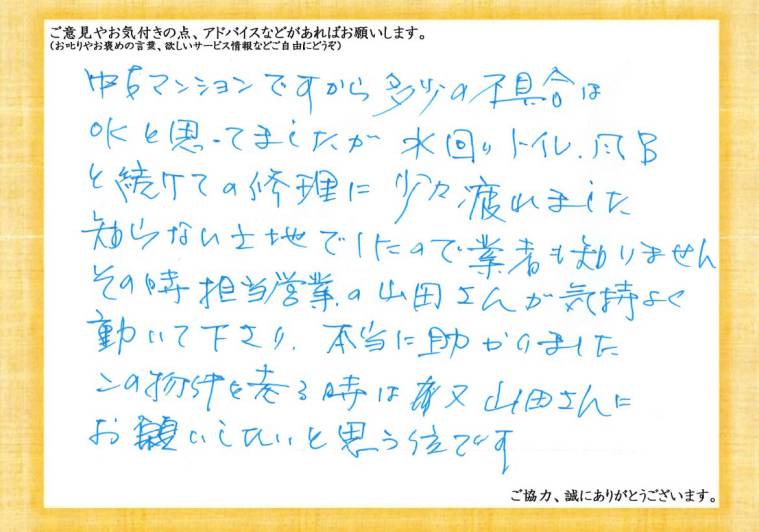 ご意見やお気付きの点、アドバイスなどがあればお願いします。
(お叱りやお褒めの言葉、欲しいサービス情報などご自由にどうぞ)
中古マンションですから多少の不具合は
OKと思ってましたが 水回り トイレ、風呂
と続けての修理に 少々疲れました
知らない土地でしたので業者も知りません
その時 担当営業の山田さんが気持よく
動いて下さり、本当に助かりました
この物件を売る時は 又 山田さんに
お願いしたいと思う位です
ご協力、誠にありがとうございます。